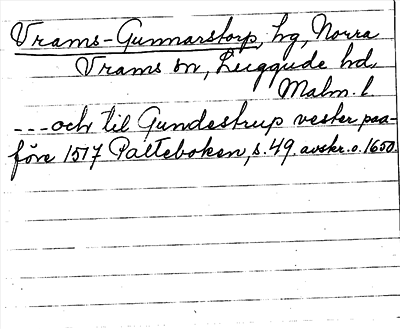 Vrams-Gunnarstorp, hg, Norra
Vrams sn, Luggude hd,
Malm. l.
---och til Gundestrup vester paa-
före 1517 Palteboken, s. 49. avskr. o. 1650.